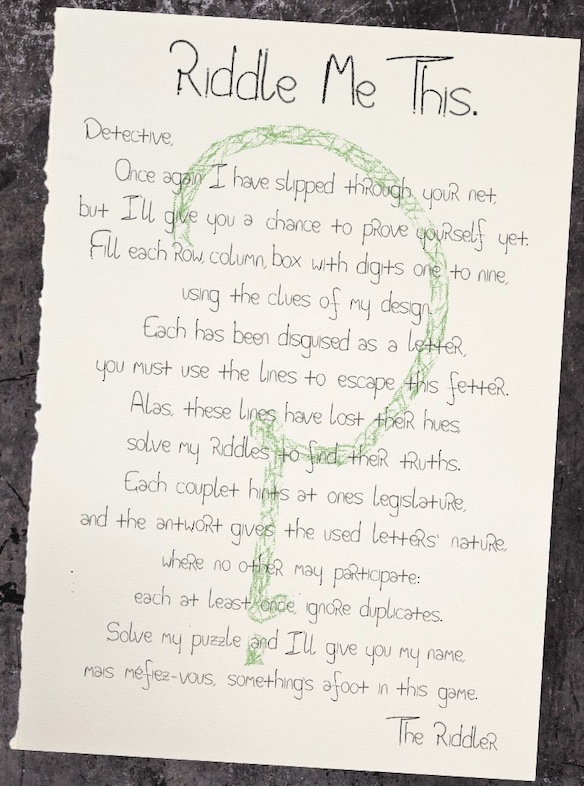 Riddle Me This.
Detective,
Once again I have slipped through your net,
but I'll give you a chance to prove yourself yet.
Fill each row, column, box with digits one to nine,
using the clues of my design.
Each has been disguised as a letter,
you must use the lines to escape this fetter.
Alas, these lines have lost their hues,
solve my riddles to find their truths.
Each couplet hints at ones legislature,
and the antwort gives the used letters' nature,
where no other may participate:
each at least once, ignore duplicates.
Solve my puzzle and I'll give you my name,
mais méfiez-vous, something's afoot in this game.
The Riddler